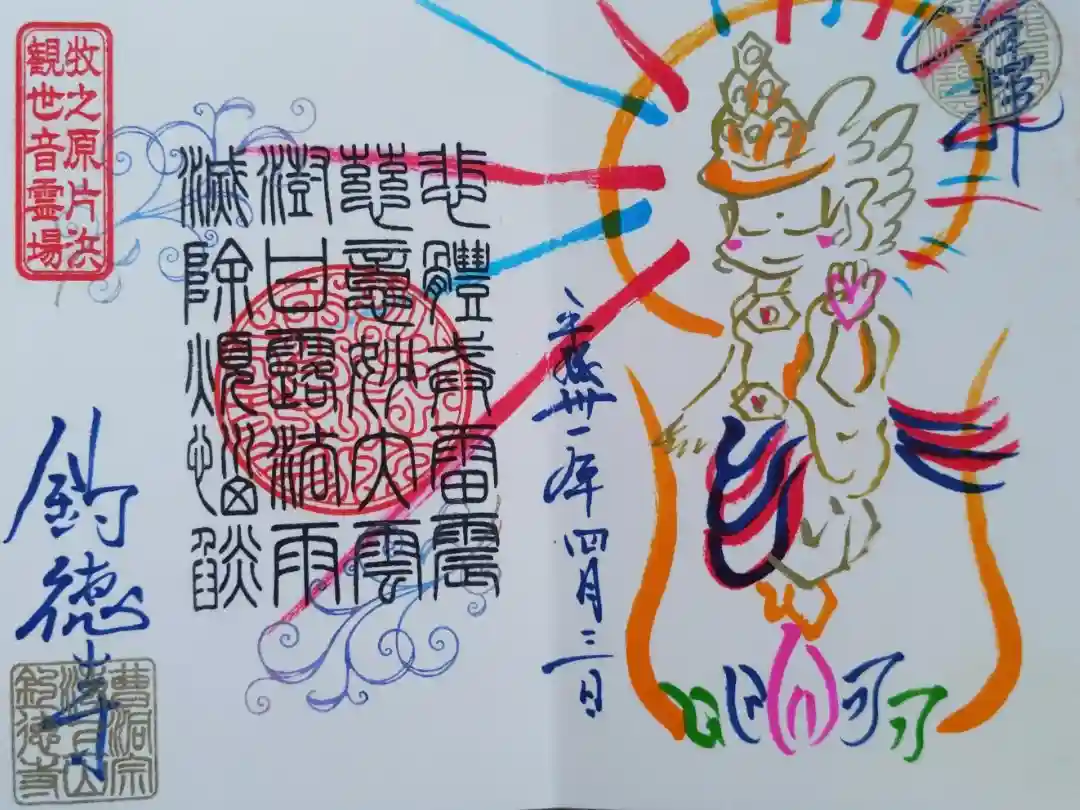 奉拝
平成卅一年四月三日
悲體戒雷震
慈意妙大雲
澍甘露法雨
滅除煩惱燄
牧之原片浜
観世音霊場
釣徳寺
曹洞宗
釣徳寺